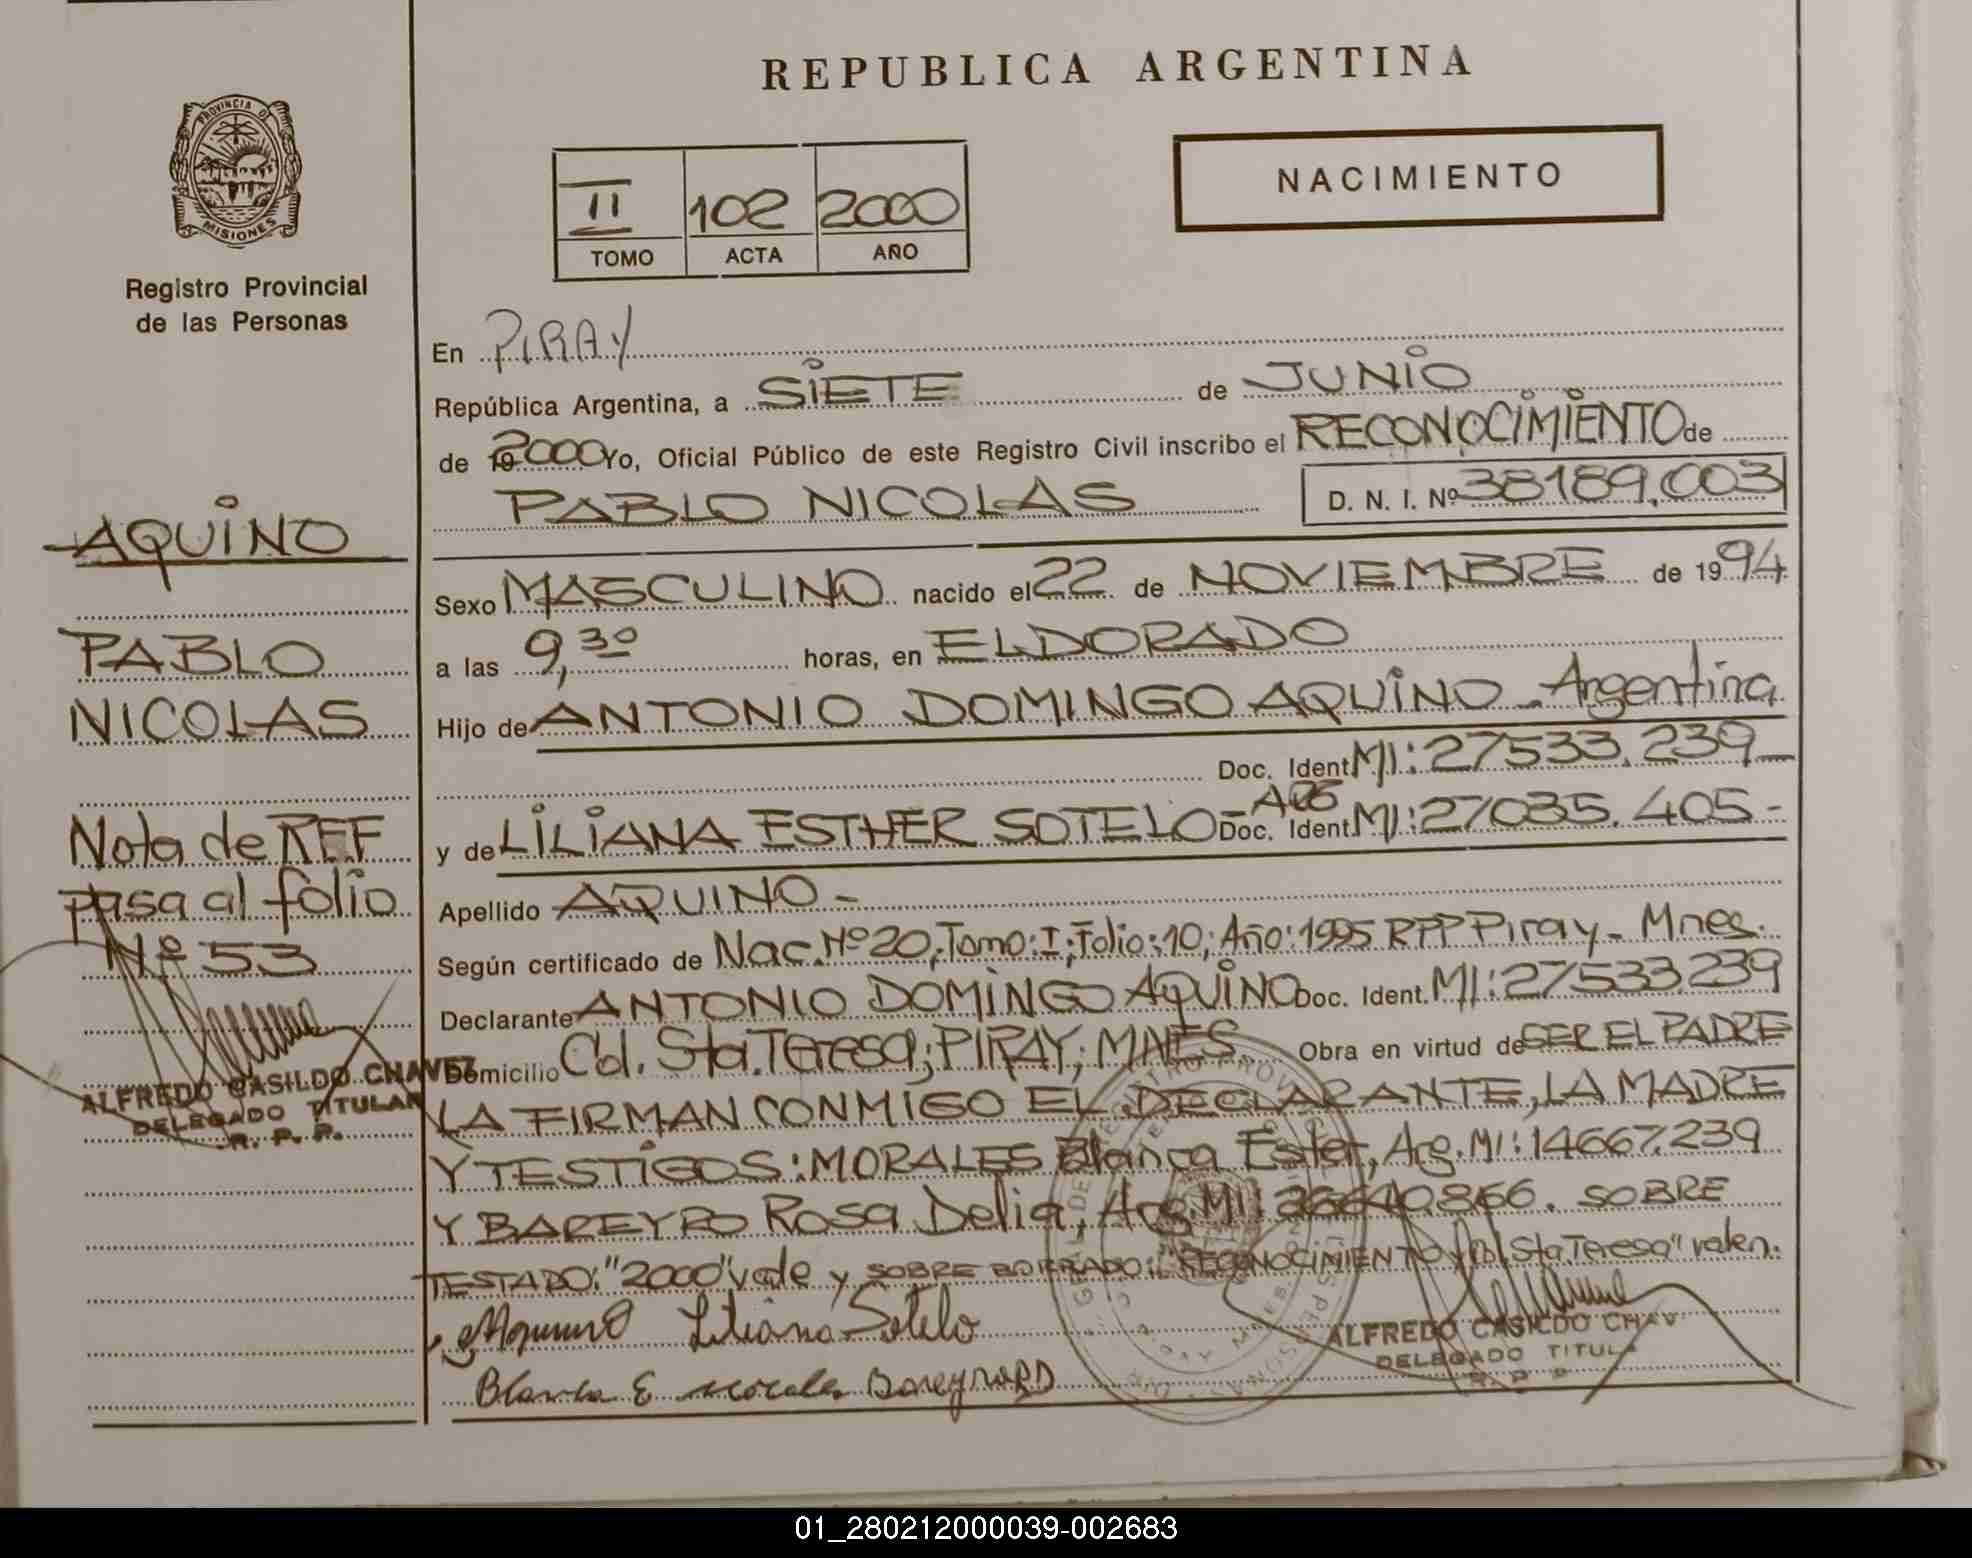 REPUBLICA ARGENTINA
PROVINCIA DE
MISIONES
Registro Provincial
de las Personas
II 102 2000
TOMO ACTA AÑO
NACIMIENTO
AQUINO
PABLO
NICOLAS
Nota de REF
pasa al folio
Nº 53
ALFREDO CASILDO CHAVEZ
DELEGADO TITULAR
R. P. P.
En PIRAY
República Argentina, a SIETE de JUNIO
de 2000 Yo, Oficial Público de este Registro Civil inscribo el RECONOCIMIENTO de
PABLO NICOLAS D. N. I. Nº 38189.003
Sexo MASCULINO nacido el 22 de NOVIEMBRE de 1994
a las 9,30 horas, en ELDORADO
Hijo de ANTONIO DOMINGO AQUINO - Argentina
Doc. Ident. MI: 27533.239-
y de LILIANA ESTHER SOTELO - ARG Doc. Ident. MI: 27035.405-
Apellido AQUINO -
Según certificado de Nac. Nº 20; Tomo: I; Folio: 10; Año: 1995 RPP Piray - Mnes.
Declarante ANTONIO DOMINGO AQUINO Doc. Ident. MI: 27533.239
Domicilio Col. Sta. Teresa; PIRAY; MNES. Obra en virtud de SER EL PADRE
LA FIRMAN CONMIGO EL DECLARANTE, LA MADRE
Y TESTIGOS: MORALES Blanca Ester, Arg. MI: 14667.239
Y BAREYRO Rosa Delia, Arg. MI: 26640.866. SOBRE
TESTADO: "2000" vale y SOBRE BORRADO: "RECONOCIMIENTO y Col. Sta. Teresa" valen.
Aquino Liliana Sotelo
Blanca E Morales Bareyro RD
ALFREDO CASILDO CHAV
DELEGADO TITULA
R P P
01_280212000039-002683